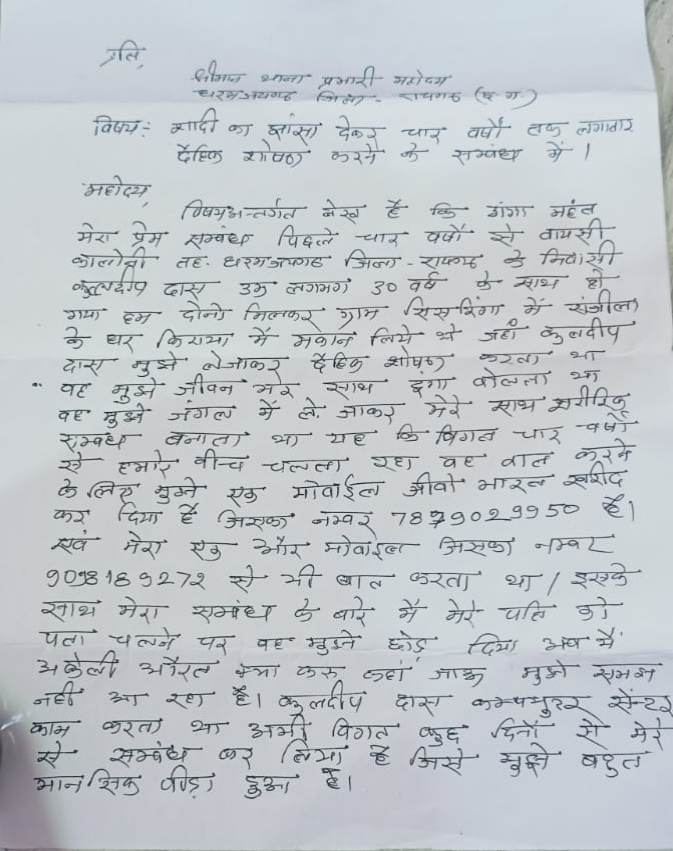 प्रति,
श्रीमान थाना प्रभारी महोदय
धरमजयगढ जिला - रायगढ (छ ग.)
विषय :- शादी का झांसा देकर चार वर्षों तक लगातार
दैहिक शोषण करने के सम्बंध में ।
महोदय,
विषयअन्तर्गत लेख है कि गंगा महंत
मेरा प्रेम सम्बंध पिछले चार वर्षों से बायसी
कालोनी तह. धरमजयगढ जिला - रायगढ के निवासी
कुलदीप दास उम्र लगभग 30 वर्ष के साथ हो
गया हम दोनो मिलकर ग्राम सिसरिंगा में
के घर किराया में मकान लिये थे जहाँ कुलदीप
दास मुझे लेजाकर दैहिक शोषण करता था
वह मुझे जीवन भर साथ दूंगा बोलता था
वह मुझे जंगल में ले जाकर मेरे साथ शारीरिक
सम्बंध बनाता था यह कि विगत चार वर्षों
से हमारे बीच चलता रहा वह बात करने
के लिए मुझे एक मोबाईल जीवो भारत खरीद
कर दिया है जिसका नम्बर है।
एवं मेरा एक और मोबाईल जिसका नम्बर
9098189272 से भी बात करता था / इसके
साथ मेरा सम्बंध के बारे में मेरे पति को
पता चलने पर वह मुझे छोड़ दिया अब मैं
अकेली औरत क्या करू कहां जाऊ मुझे समझ
नहीं आ रहा है। कुलदीप दास कम्प्युटर सेंन्टर
काम करता था अभी विगत कुछ दिनों से मेरे
से सम्बंध कर लिया है जिसे मुझे बहुत
मानसिक पीड़ा हुआ है।